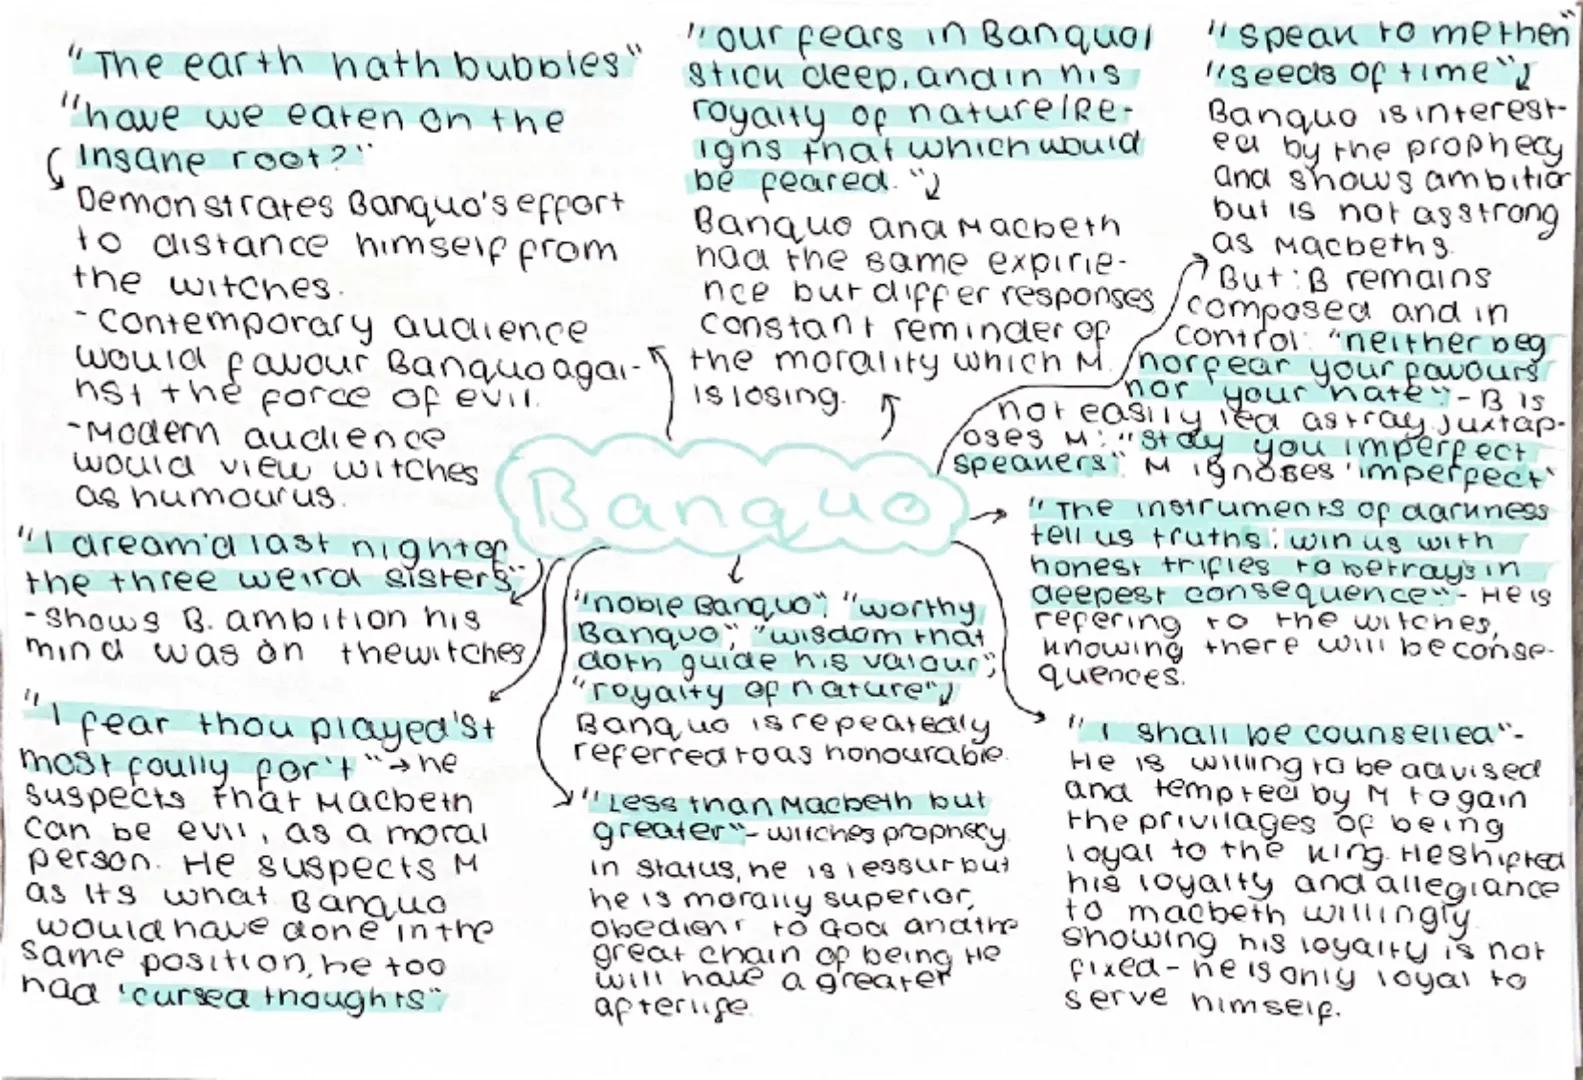 "The earth hath bubbles"
"have we eaten on the
insane root?"
Demonstrates Banquo's effort
to distance himself from
the witches.
- Contemporary audience
would favour Banquo agai-
nst the force of evil.
- Modern audience
would view witches
as humourus.
"our fears in Banquo/
stick deep, and in his
royalty of nature/Re-
igns that which would
be feared."
Banquo and Macbeth
had the same expirie-
nce but differ responses
constant reminder of
the morality which M.
is losing.
"speak to me then"
"seeds of time"
Banquo is interest-
ed by the prophecy
and shows ambition
but is not as strong
as Macbeths.
But: B remains
composed and in
control: "neither beg
nor fear your favours
nor your hate" - B is
not easily led astray. Juxtap-
oses M: "stay you imperfect
speakers". M ignores 'imperfect'
Banquo
"I dream'd last night of
the three weird sisters"
- shows B. ambition his
mind was on the witches
"I fear thou played'st
most foully for't" → he
suspects that Macbeth
can be evil, as a moral
person. He suspects M
as its what Banquo
would have done in the
same position, he too
had 'cursed thoughts"
"noble Banquo", "worthy
Banquo", "wisdom that
doth guide his valour",
"royalty of nature"
Banquo is repeatedly
referred to as honourable.
"Less than Macbeth but
greater" - witches prophecy.
in status, he is lessur but
he is morally superior,
obedient to God and the
great chain of being He
will have a greater
afterlife.
"The instruments of darkness
tell us truths; win us with
honest trifles to betrays in
deepest consequence" - He is
refering to the witches,
knowing there will be conse-
quences.
"I shall be counselled" -
He is willing to be advised
and tempted by M to gain
the privilages of being
loyal to the king. He shifted
his loyalty and allegiance
to macbeth willingly
showing his loyalty is not
fixed - he is only loyal to
serve himself.